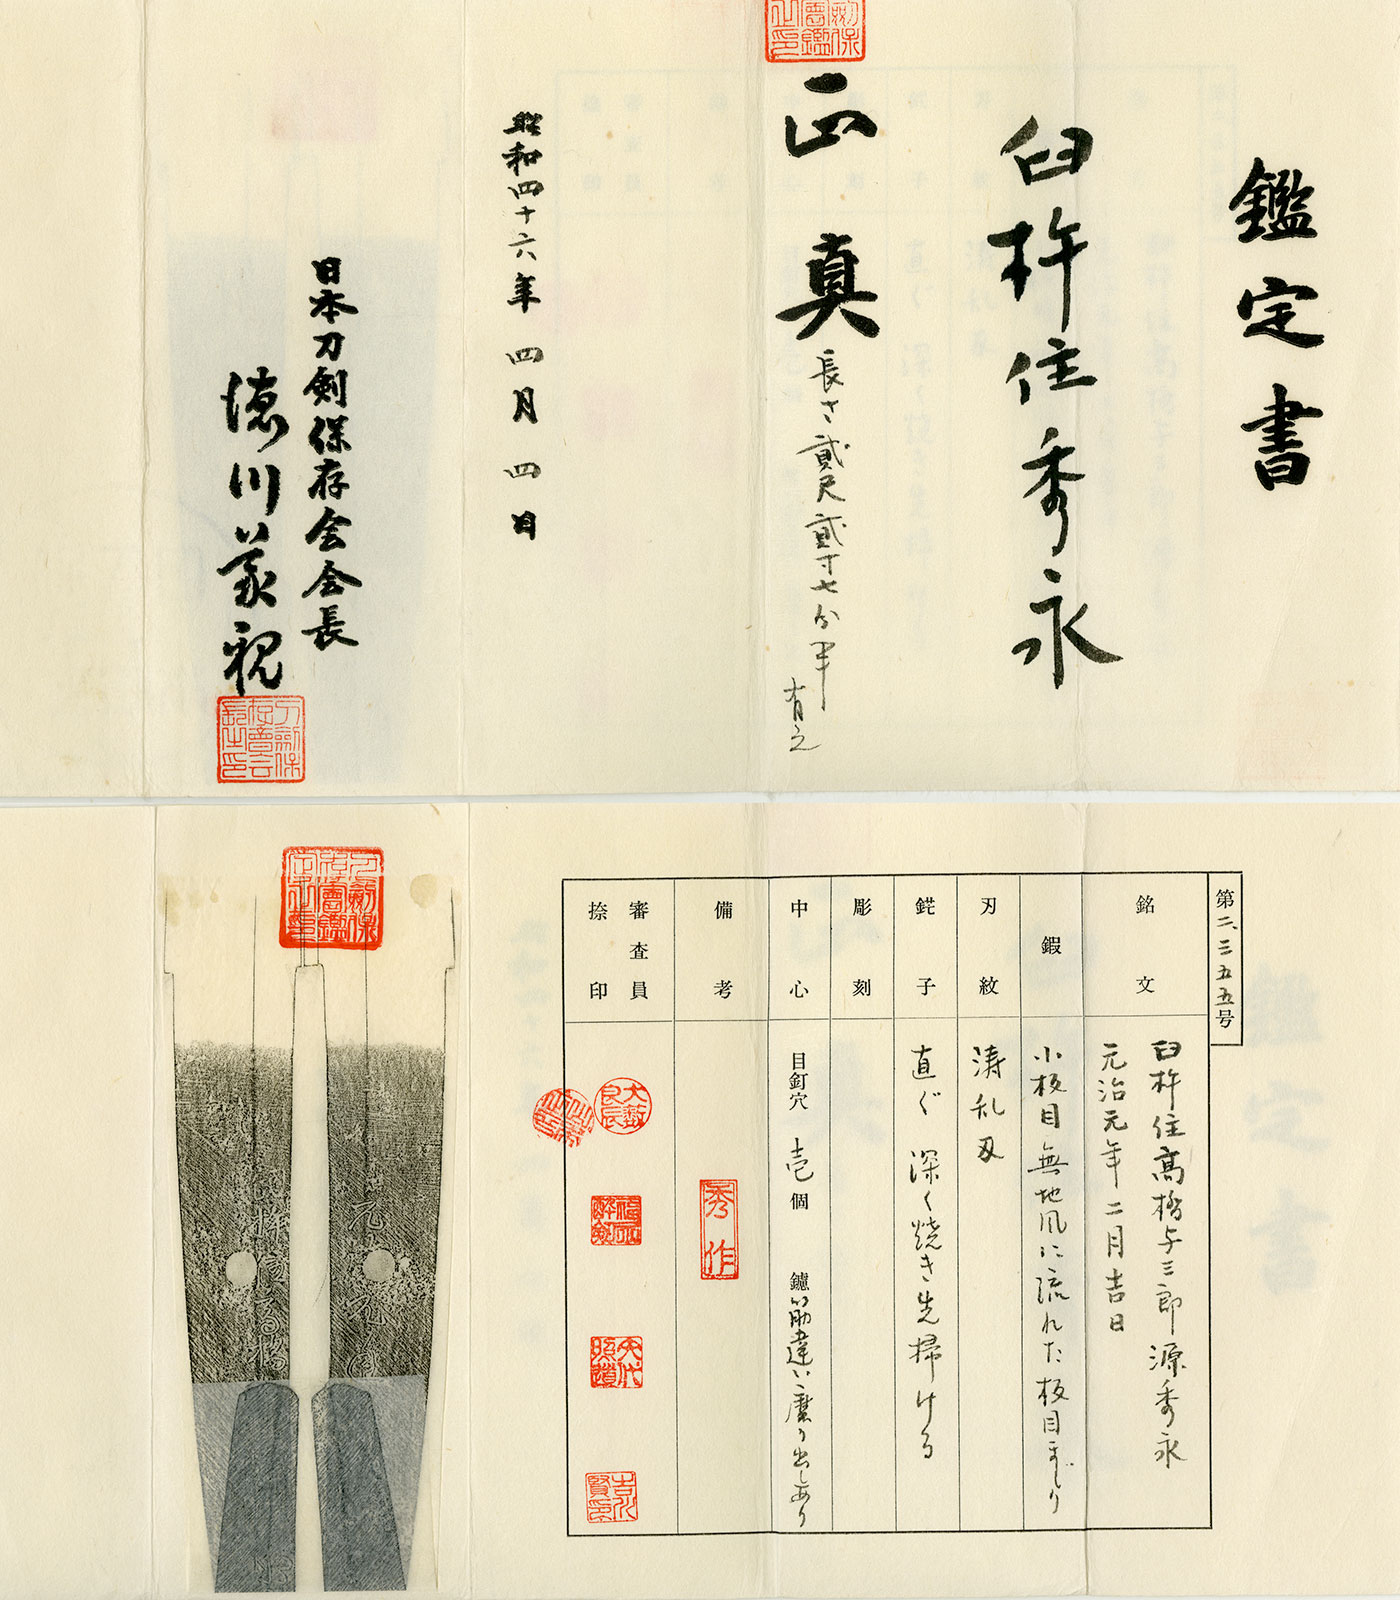 鑑定書
臼杵住秀永
正真
長さ貮尺貮寸七分半
有之
昭和四十六年四月四日
日本刀剣保存会会長
徳川義親
第二、三五五号
銘文
臼杵住高橋与三郎源秀永
元治元年二月吉日
鍜
小板目無地風に流れた板目まじり
刃紋
涛乱刃
鋩子
直ぐ 深く焼き先掃ける
彫刻
中心
目釘穴 壱個 鑢筋違い磨り出しあり
備考
秀作
審査員
捺印